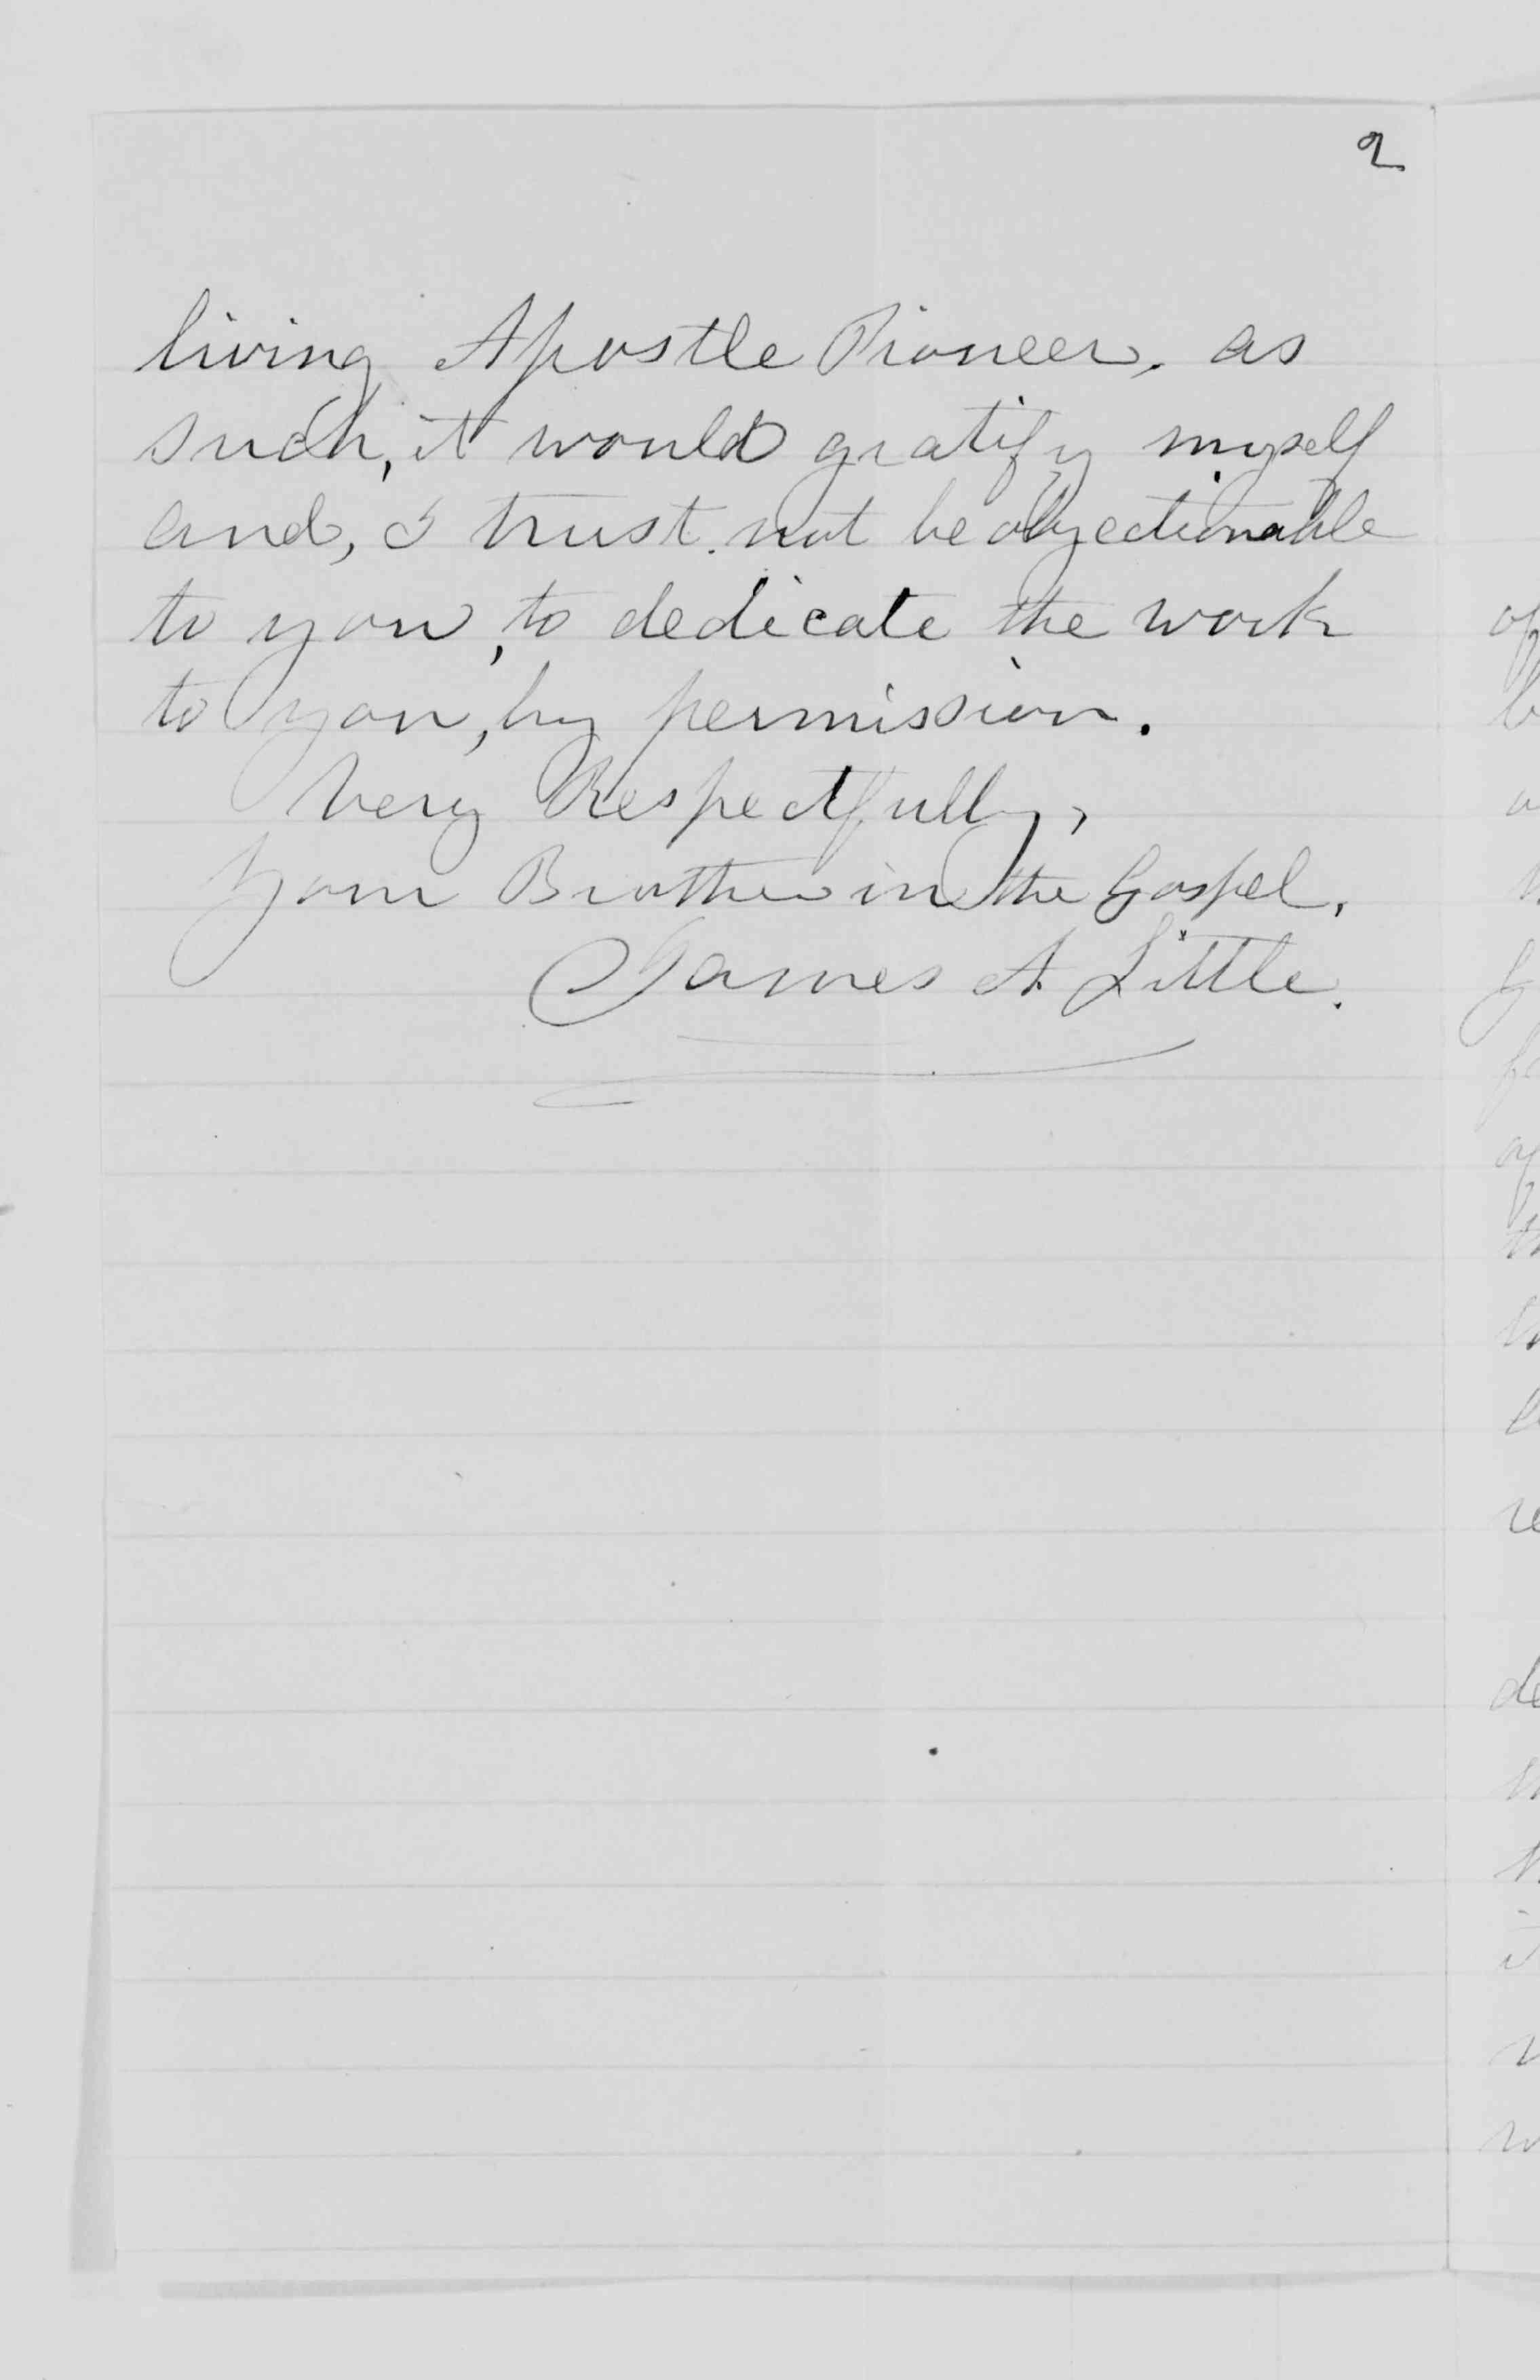 2
living Apostle Pioneer, as
such, it would gratify myself
and, I trust, not be objectionable
to you, to dedicate the work
to you, by permission.
Very Respectfully,
Your Brother in the Gospel,
James A. Little.